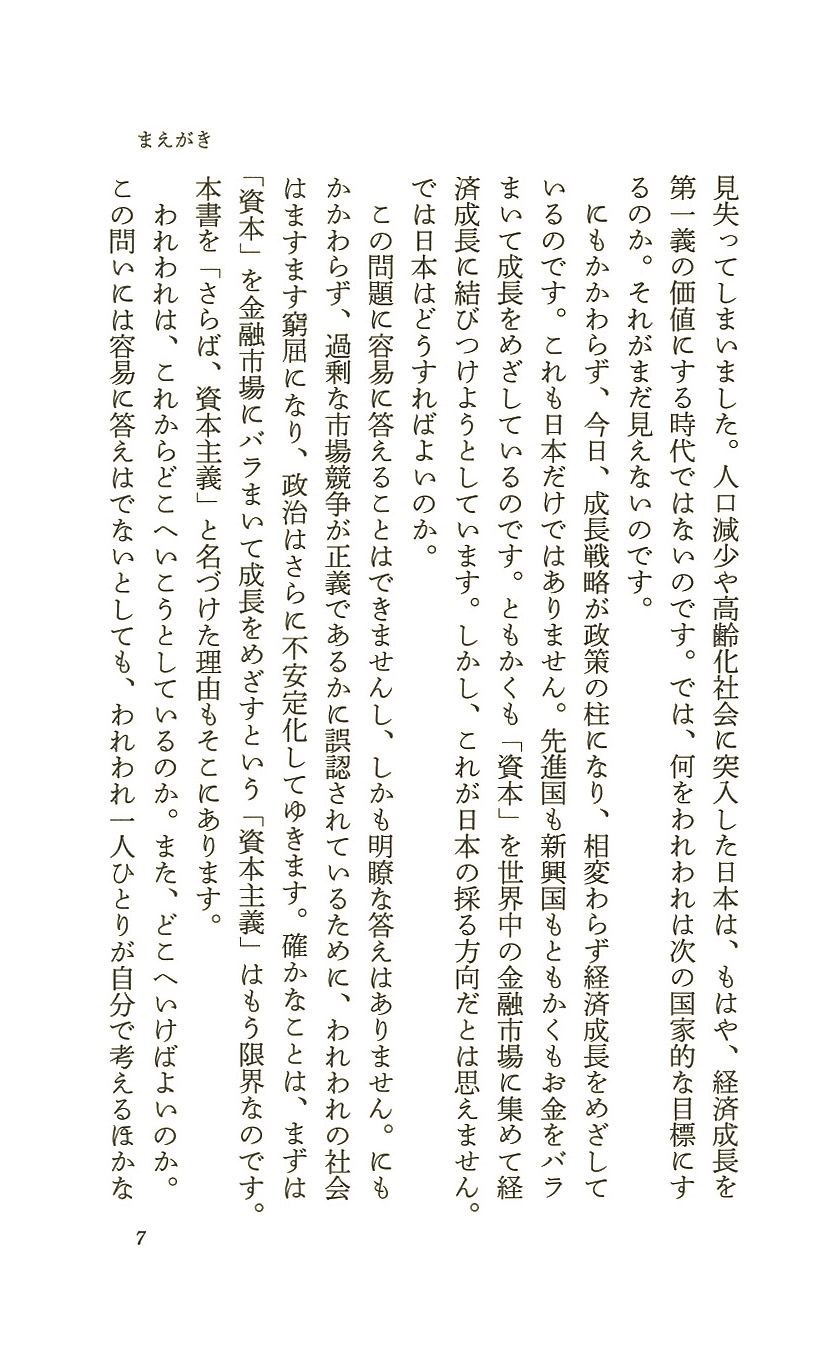 まえがき
見失ってしまいました。人口減少や高齢化社会に突入した日本は、もはや、経済成長を
第一義の価値にする時代ではないのです。では、何をわれわれは次の国家的な目標にす
るのか。それがまだ見えないのです。
にもかかわらず、今日、成長戦略が政策の柱になり、相変わらず経済成長をめざして
いるのです。これも日本だけではありません。先進国も新興国もともかくもお金をバラ
まいて成長をめざしているのです。ともかくも「資本」を世界中の金融市場に集めて経
済成長に結びつけようとしています。しかし、これが日本の採る方向だとは思えません。
では日本はどうすればよいのか。
この問題に容易に答えることはできませんし、しかも明瞭な答えはありません。にも
かかわらず、過剰な市場競争が正義であるかに誤認されているために、われわれの社会
はますます窮屈になり、政治はさらに不安定化してゆきます。確かなことは、まずは
「資本」を金融市場にバラまいて成長をめざすという「資本主義」はもう限界なのです。
本書を「さらば、資本主義」と名づけた理由もそこにあります。
われわれは、これからどこへいこうとしているのか。また、どこへいけばよいのか。
この問いには容易に答えはでないとしても、われわれ一人ひとりが自分で考えるほかな
7